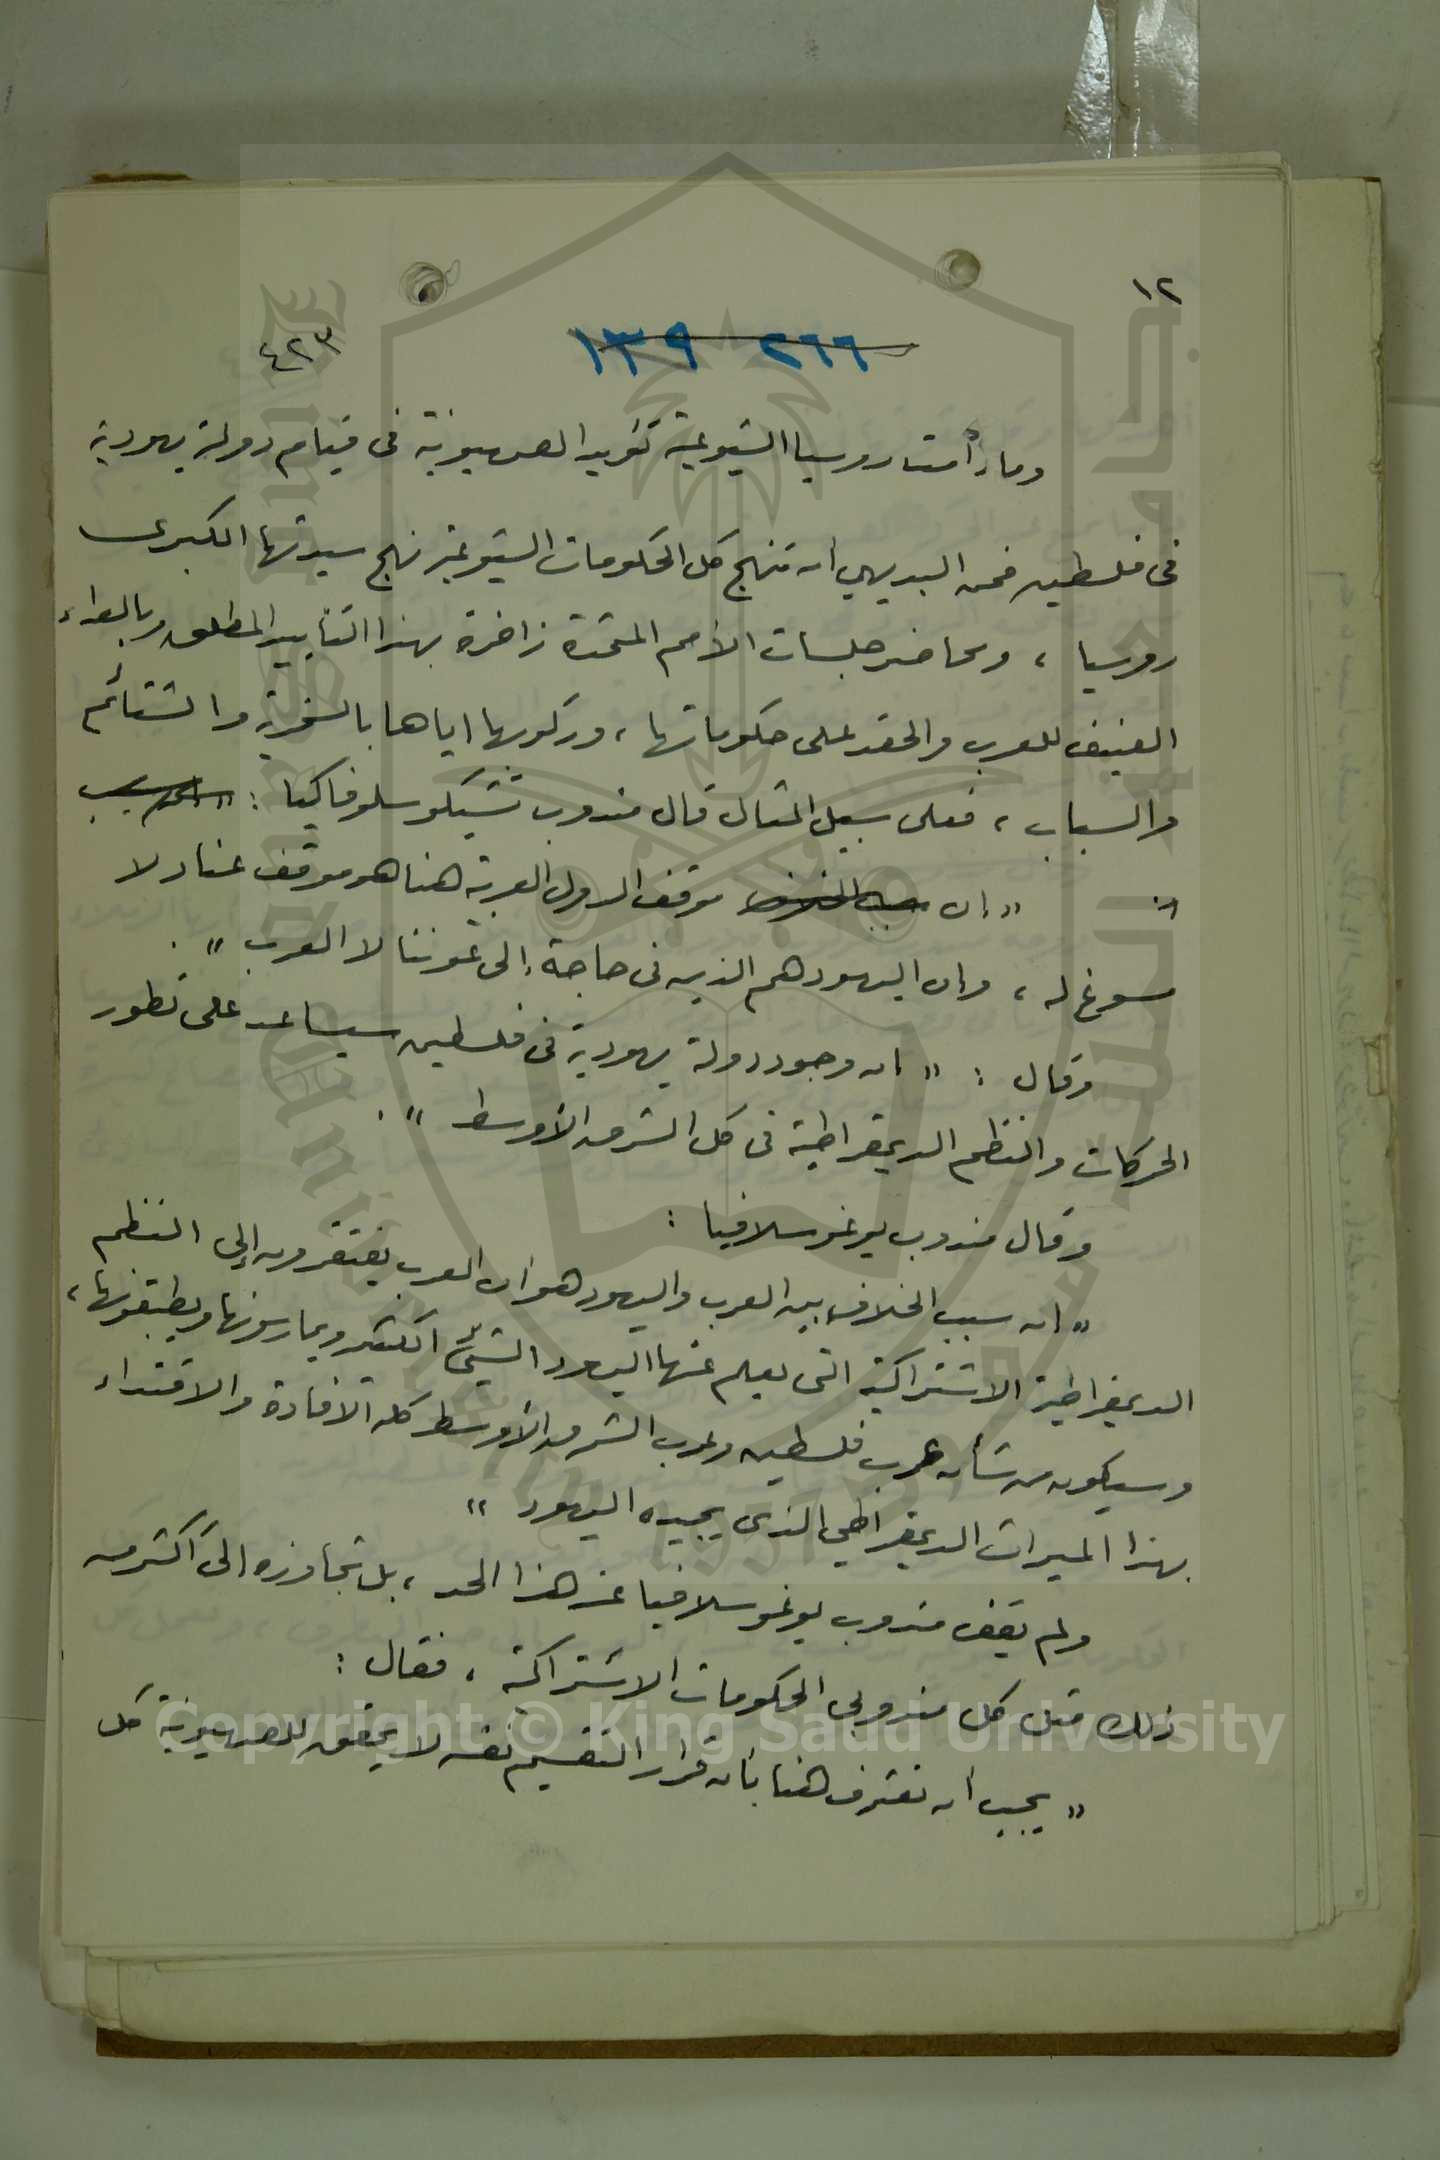 ١٢
١٣٩ ٢٦٦
٤٢٣
وما دامت روسيا الشيوعية تؤيد الصهيونية في قيام دولة يهودية
في فلسطين فمن البديهي أن تنهج كل الحكومات الشيوعية نهج سيدتها الكبرى
روسيا ، ومحاضر جلسات الأمم المتحدة زاخرة بهذا التأييد المطلق وبالعداء
العنيف للعرب والحقد على حكوماتها ، وركوبها اياها بالسخرية والشتائم
والسباب ، فعلى سبيل المثال قال مندوب تشيكوسلوفاكيا :
" ان موقف الدول العربية هنا هو موقف عناد لا
مسوغ له ، وان اليهود هم الذين في حاجة إلى عوننا لا العرب " .
وقال : " ان وجود دولة يهودية في فلسطين سيساعد على تطور
الحركات والنظم الديمقراطية في كل الشرق الأوسط " .
وقال مندوب يوغوسلافيا :
" ان سبب الخلاف بين العرب واليهود هو ان العرب يفتقرون إلى النظم
الديمقراطية الاشتراكية التي يعلم عنها اليهود الشئ الكثير ويمارسونها ويطبقونها ،
وسيكون من شأن عرب فلسطين وعرب الشرق الأوسط كله الافادة والاقتداء
بهذا الميراث الديمقراطي الذي يجيده اليهود "
ولم يقف مندوب يوغوسلافيا عند هذا الحد ، بل تجاوزه الى أكثر من
ذلك مثل كل مندوبي الحكومات الاشتراكية ، فقال :
" يجب ان نعترف هنا بأن قرار التقسيم نفسه لا يحقق للصهيونية كل
Copyright © King Saud University
جامعة الملك سعود
King Saud University
1957